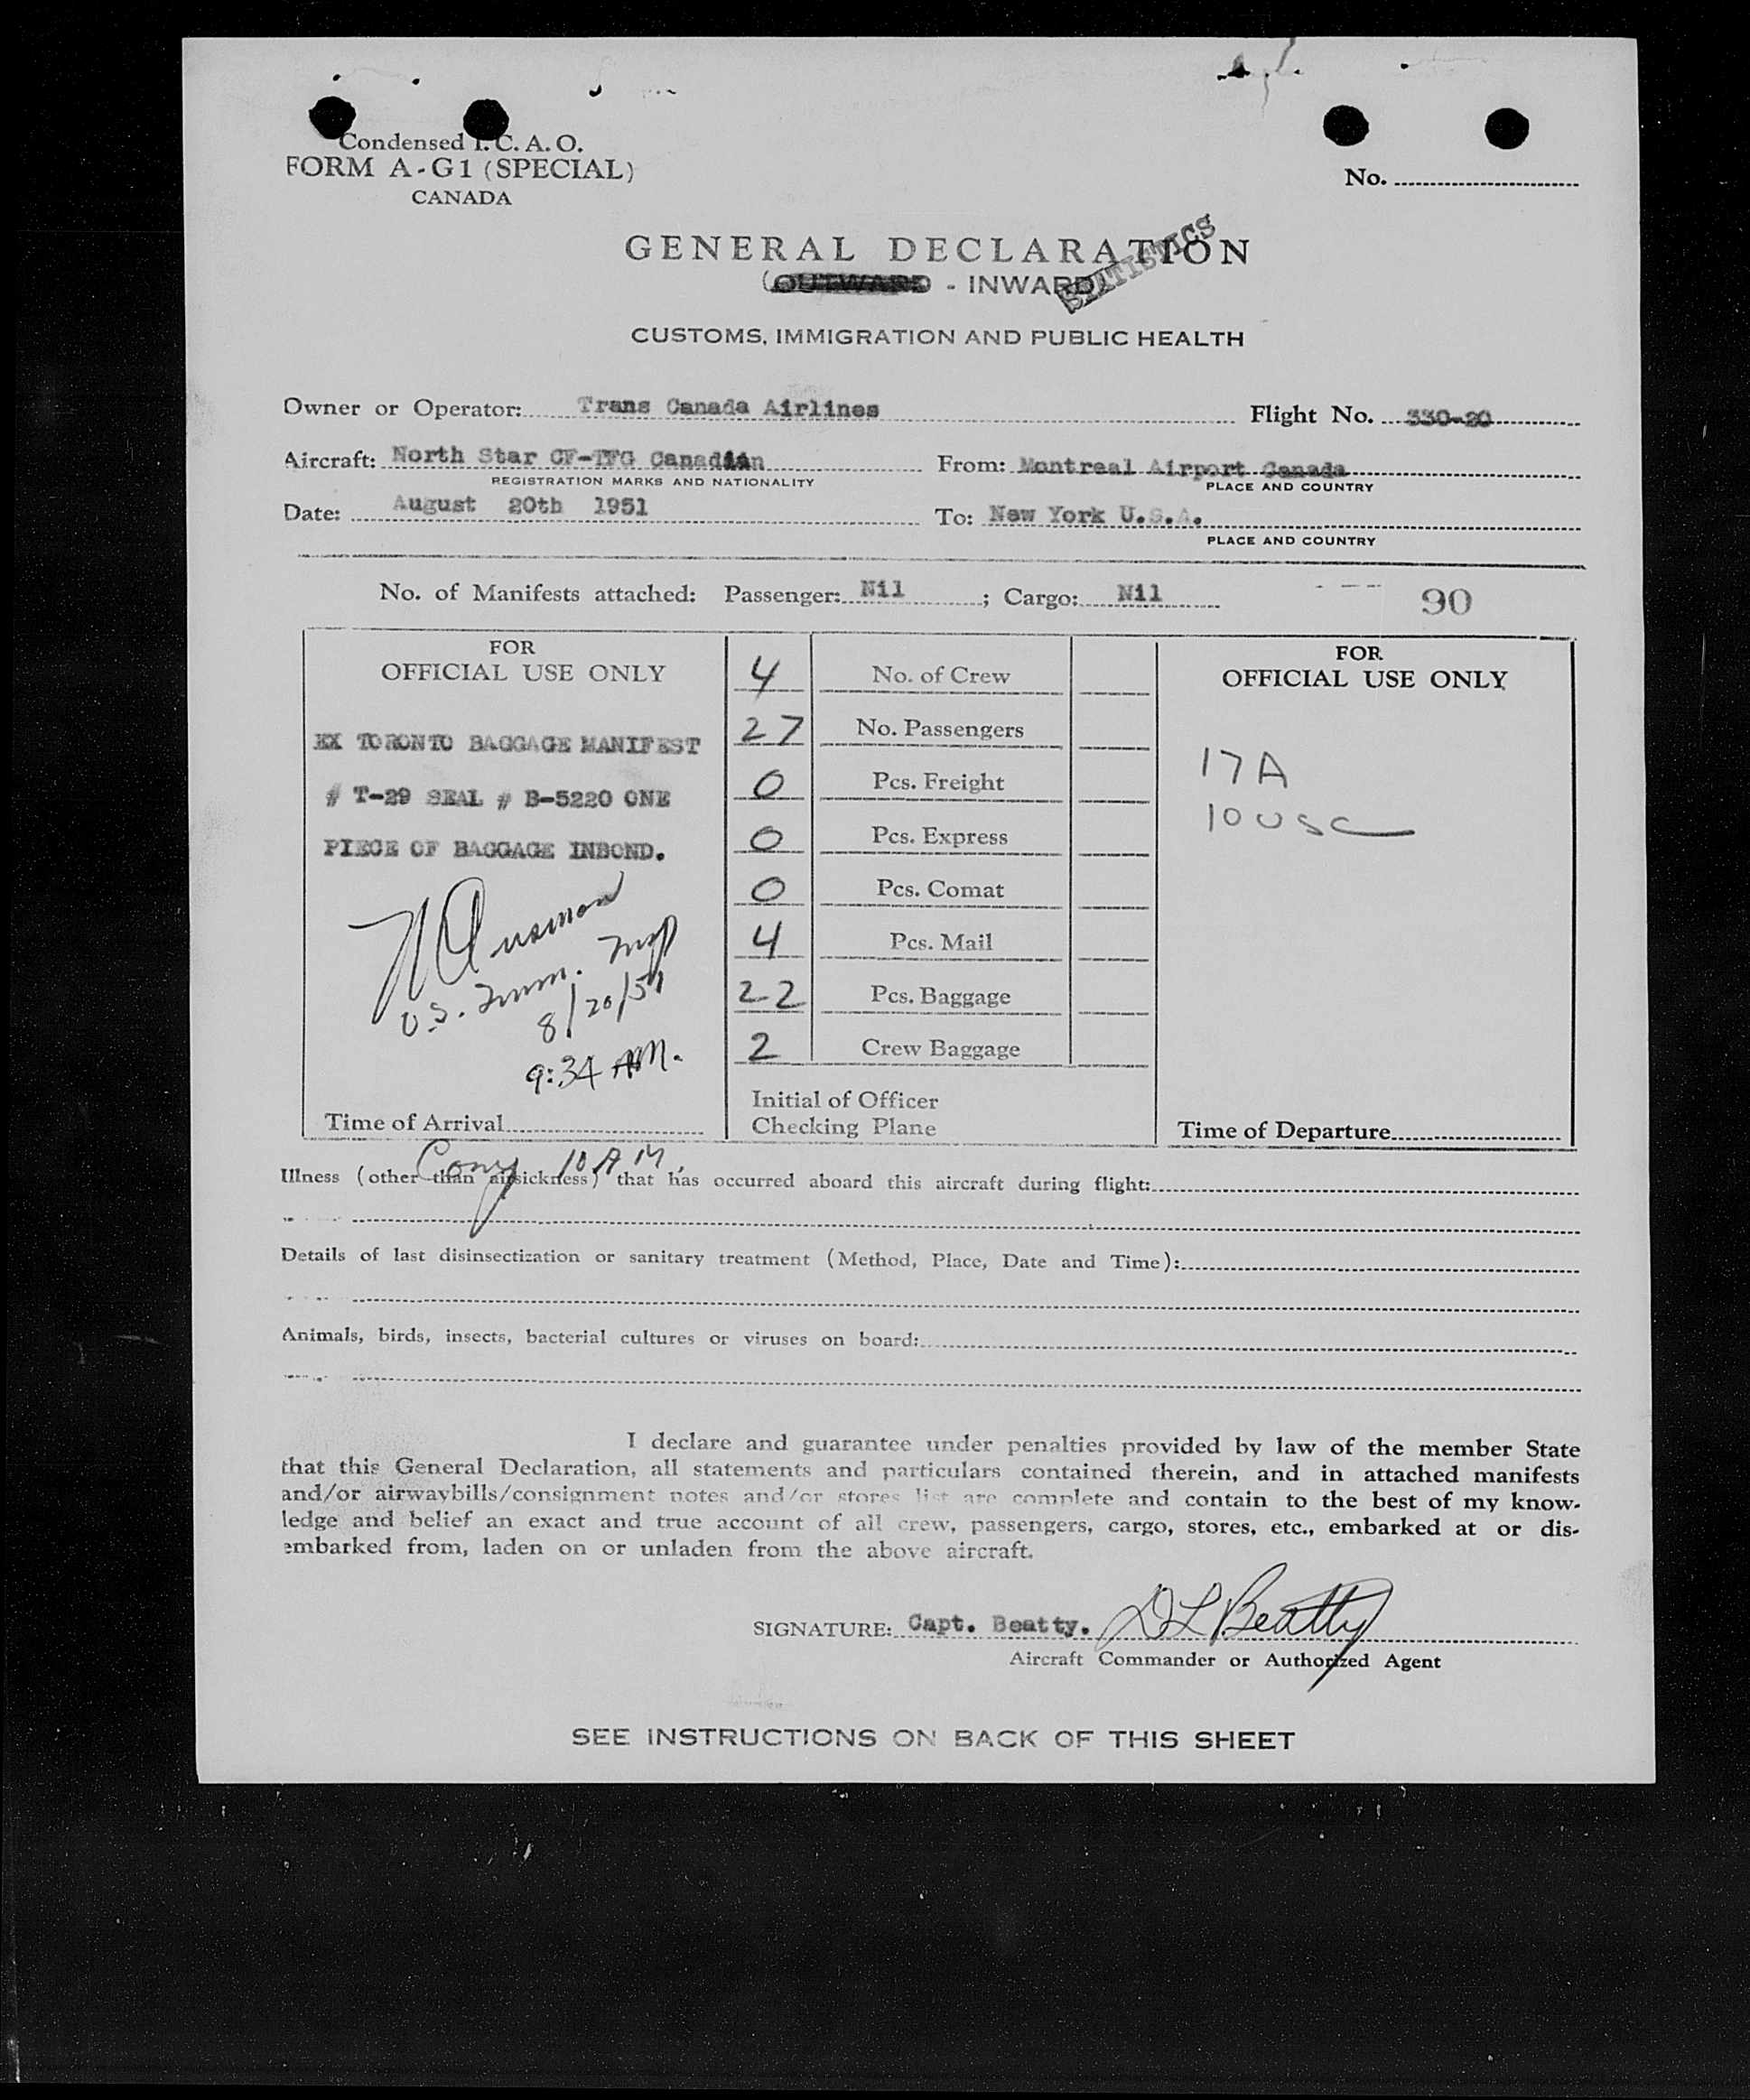 Condensed I. C. A. O.
FORM A-G1 (SPECIAL)
CANADA
No.
GENERAL DECLARATION
(OUTWARD - INWARD)
STATISTICS
CUSTOMS, IMMIGRATION AND PUBLIC HEALTH
Owner or Operator: Trans Canada Airlines Flight No. 330-20
Aircraft: North Star CF-TFG Canadian From: Montreal Airport Canada
REGISTRATION MARKS AND NATIONALITY PLACE AND COUNTRY
Date: August 20th 1951 To: New York U.S.A.
PLACE AND COUNTRY
No. of Manifests attached: Passenger: Nil ; Cargo: Nil 90
FOR
OFFICIAL USE ONLY
EX TORONTO BAGGAGE MANIFEST
# T-29 SEAL # B-5220 ONE
PIECE OF BAGGAGE INBOND.
U.S. Imm. Insp
8/20/51
9:34 AM.
Time of Arrival
4 No. of Crew
27 No. Passengers
0 Pcs. Freight
0 Pcs. Express
0 Pcs. Comat
4 Pcs. Mail
22 Pcs. Baggage
2 Crew Baggage
Initial of Officer
Checking Plane
FOR
OFFICIAL USE ONLY
17A
10 USC
Time of Departure
10 AM.
Illness (other than airsickness) that has occurred aboard this aircraft during flight:
Details of last disinsectization or sanitary treatment (Method, Place, Date and Time):
Animals, birds, insects, bacterial cultures or viruses on board:
I declare and guarantee under penalties provided by law of the member State
that this General Declaration, all statements and particulars contained therein, and in attached manifests
and/or airwaybills/consignment notes and/or stores list are complete and contain to the best of my know-
ledge and belief an exact and true account of all crew, passengers, cargo, stores, etc., embarked at or dis-
embarked from, laden on or unladen from the above aircraft.
SIGNATURE: Capt. Beatty. D L Beatty
Aircraft Commander or Authorized Agent
SEE INSTRUCTIONS ON BACK OF THIS SHEET